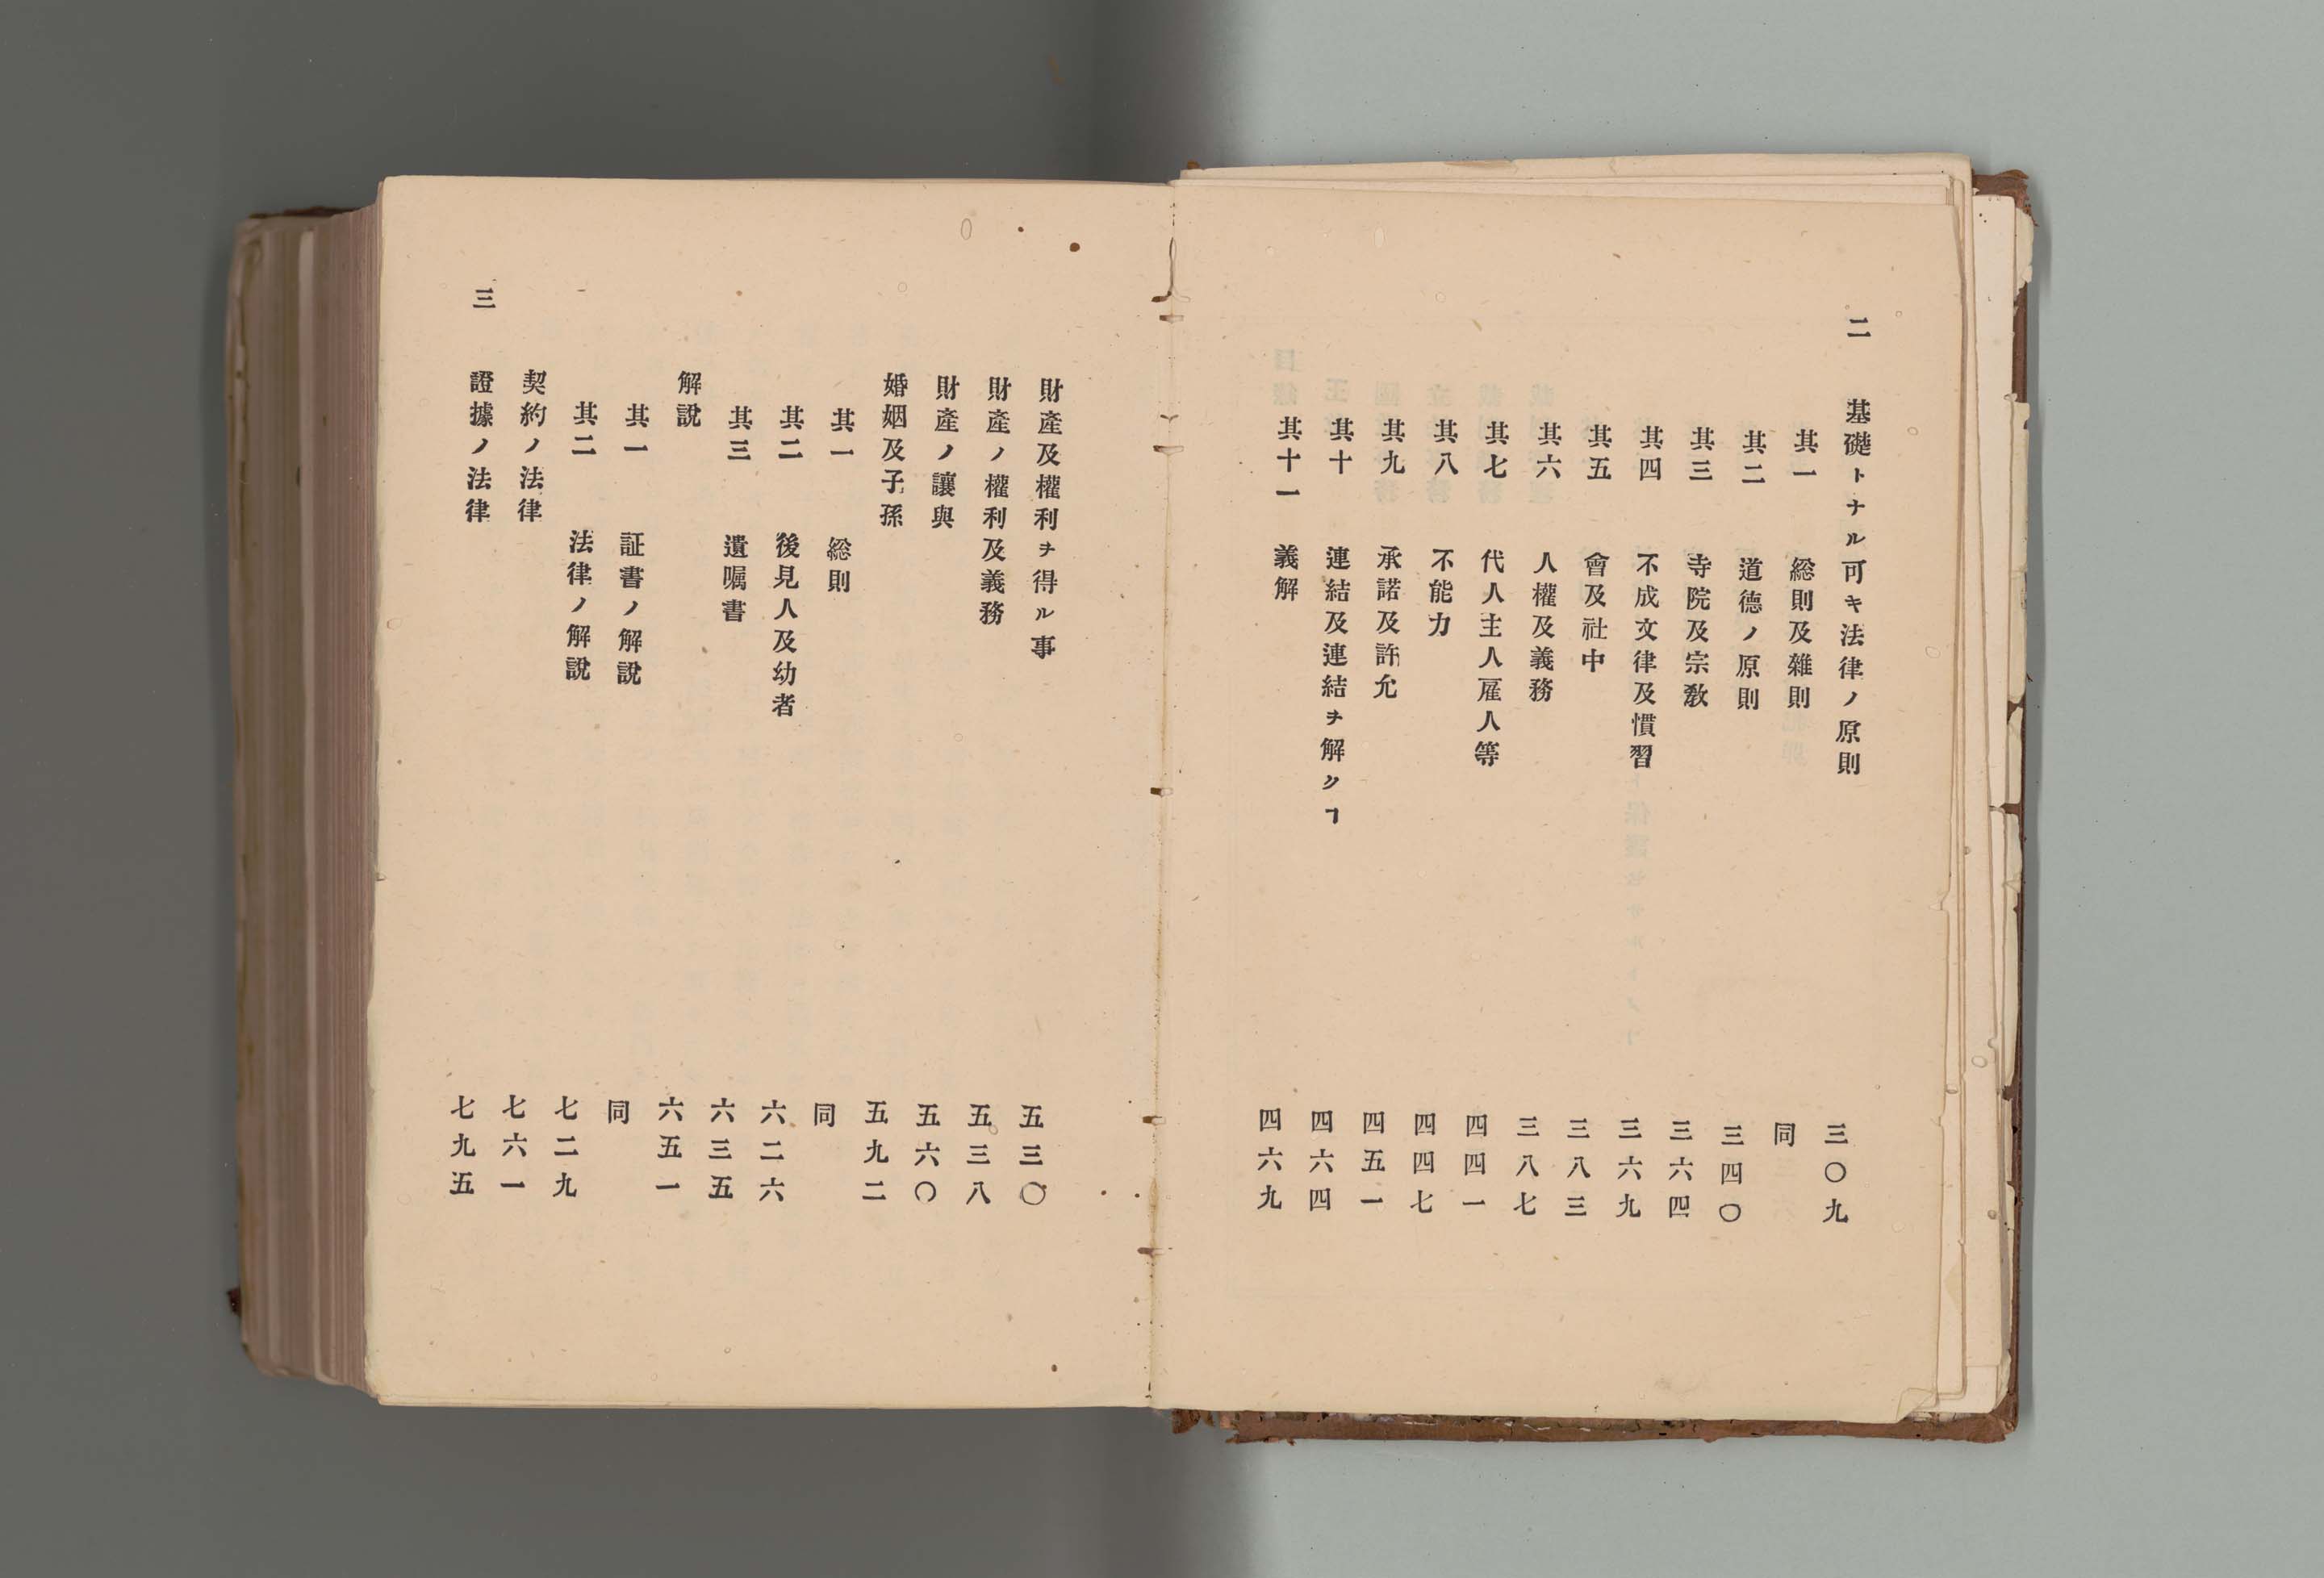 二
基礎トナル可キ法律ノ原則 三〇九
其一 総則及雜則 同
其二 道德ノ原則 三四〇
其三 寺院及宗教 三六四
其四 不成文律及慣習 三六九
其五 會及社中 三八三
其六 人權及義務 三八七
其七 代人主人雇人等 四四一
其八 不能力 四四七
其九 承諾及許允 四五一
其十 連結及連結ヲ解クヿ 四六四
其十一 義解 四六九
財產及權利ヲ得ル事 五三〇
財產ノ權利及義務 五三八
財產ノ讓與 五六〇
婚姻及子孫 五九二
其一 総則 同
其二 後見人及幼者 六二六
其三 遺囑書 六三五
解說 六五一
其一 証書ノ解說 同
其二 法律ノ解說 七二九
契約ノ法律 七六一
三
證據ノ法律 七九五